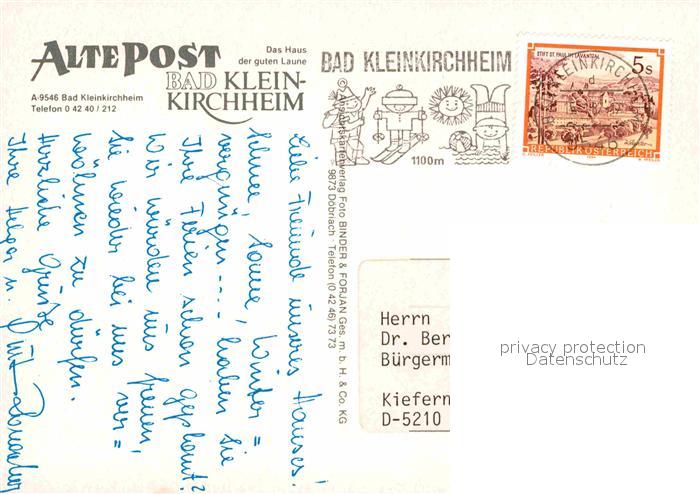 ALTE POST
BAD KLEIN-
KIRCHHEIM
Das Haus
der guten Laune
A-9546 Bad Kleinkirchheim
Telefon 0 42 40 / 212
BAD KLEINKIRCHHEIM
1100m
STIFT ST. PAUL IM LAVANTTAL
5s
REPUBLIK ÖSTERREICH
Liebe Freunde unseres Hauses!
Schnee, Sonne, Winter=
vergnügen ---, haben Sie
Ihre Ferien schon geplant?
Wir würden uns freuen,
Sie wieder bei uns ver=
wöhnen zu dürfen.
Herzliche Grüße
Ihre
© Ansichtskartenverlag Foto BINDER & FORJAN Ges. m. b. H. & Co. KG
9873 Döbriach · Telefon (0 42 46) 73 73
Herrn
Dr. Ber
Bürgerm
Kiefern
D-5210
privacy protection
Datenschutz